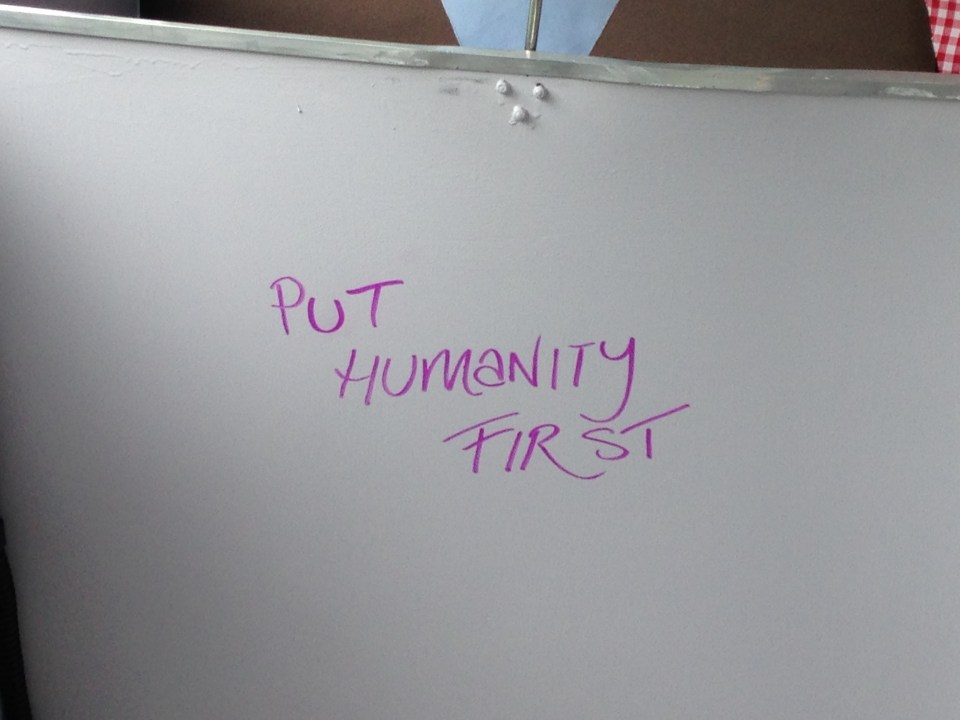 PUT
HUMANITY
FIRST